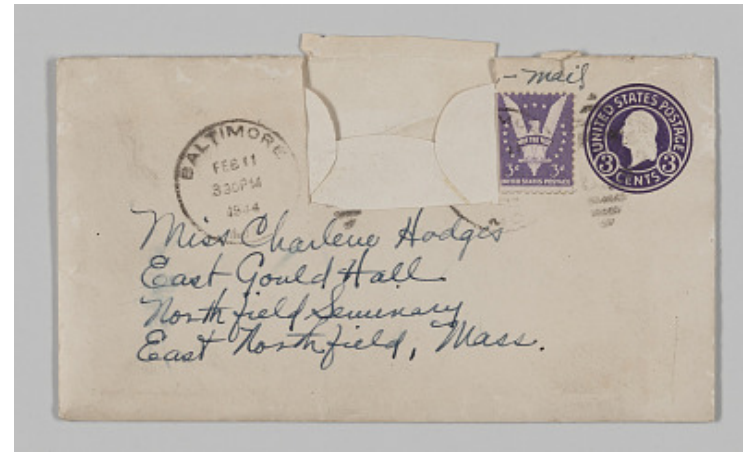 - Mail
UNITED STATES POSTAGE
3 CENTS 3
WIN THE WAR
3¢ 3¢
UNITED STATES POSTAGE
BALTIMORE
FEB 11
3 30 PM
1944
Miss Charlene Hodges
East Gould Hall
Northfield Seminary
East Northfield, Mass.